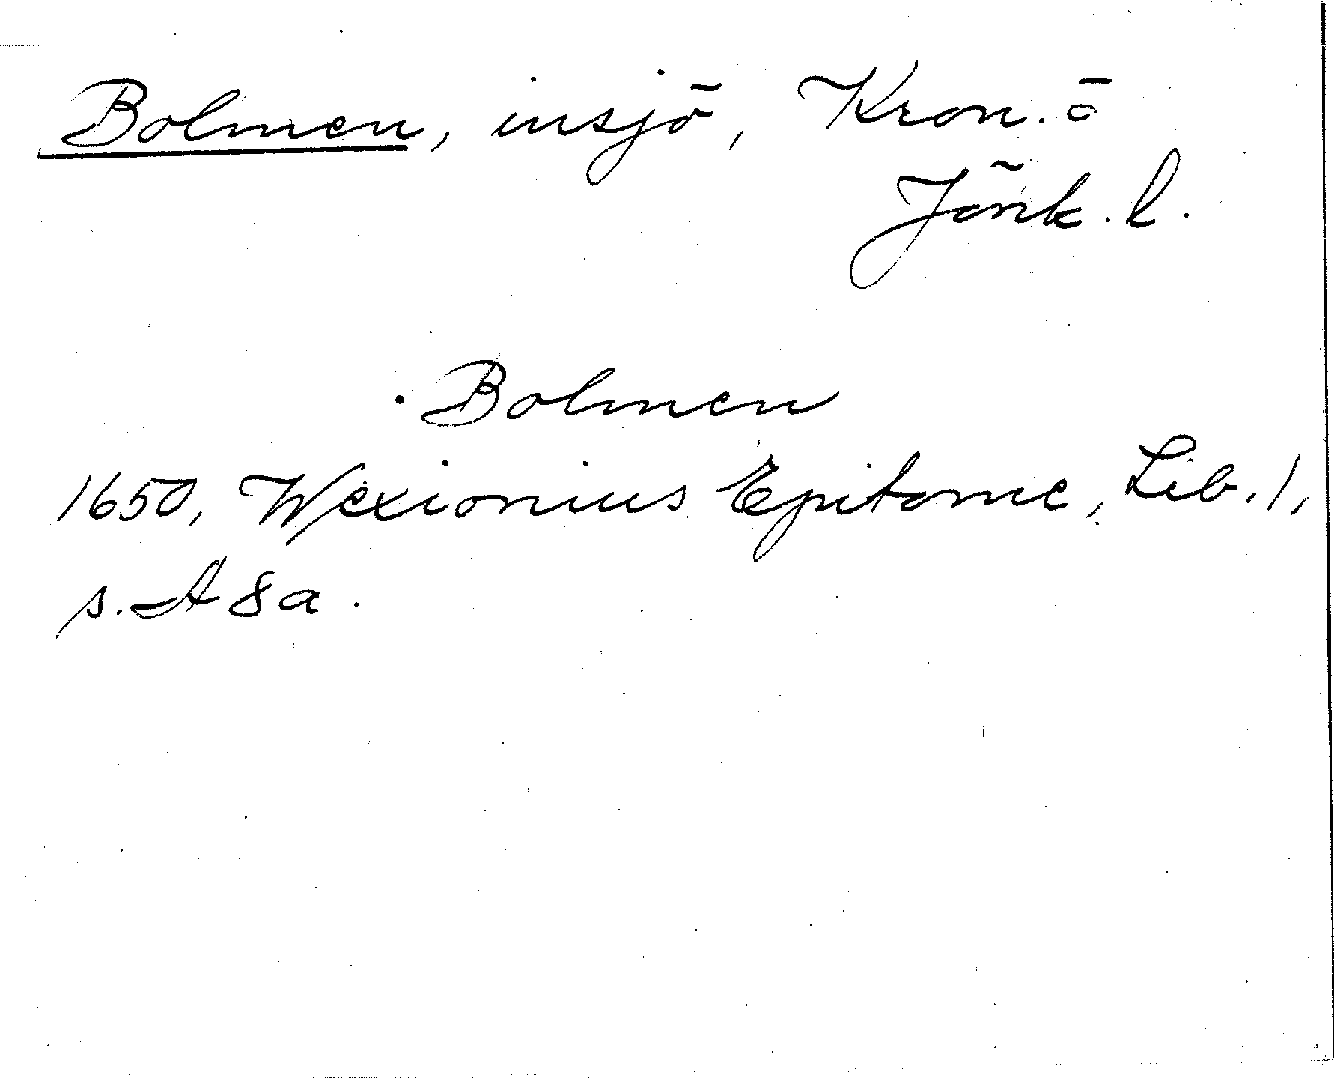 Bolmen, insjö, Kron. o
Jönk. l.
Bolmen
1650, Wexionius Epitome, Lib. 1,
s. A 8 a.